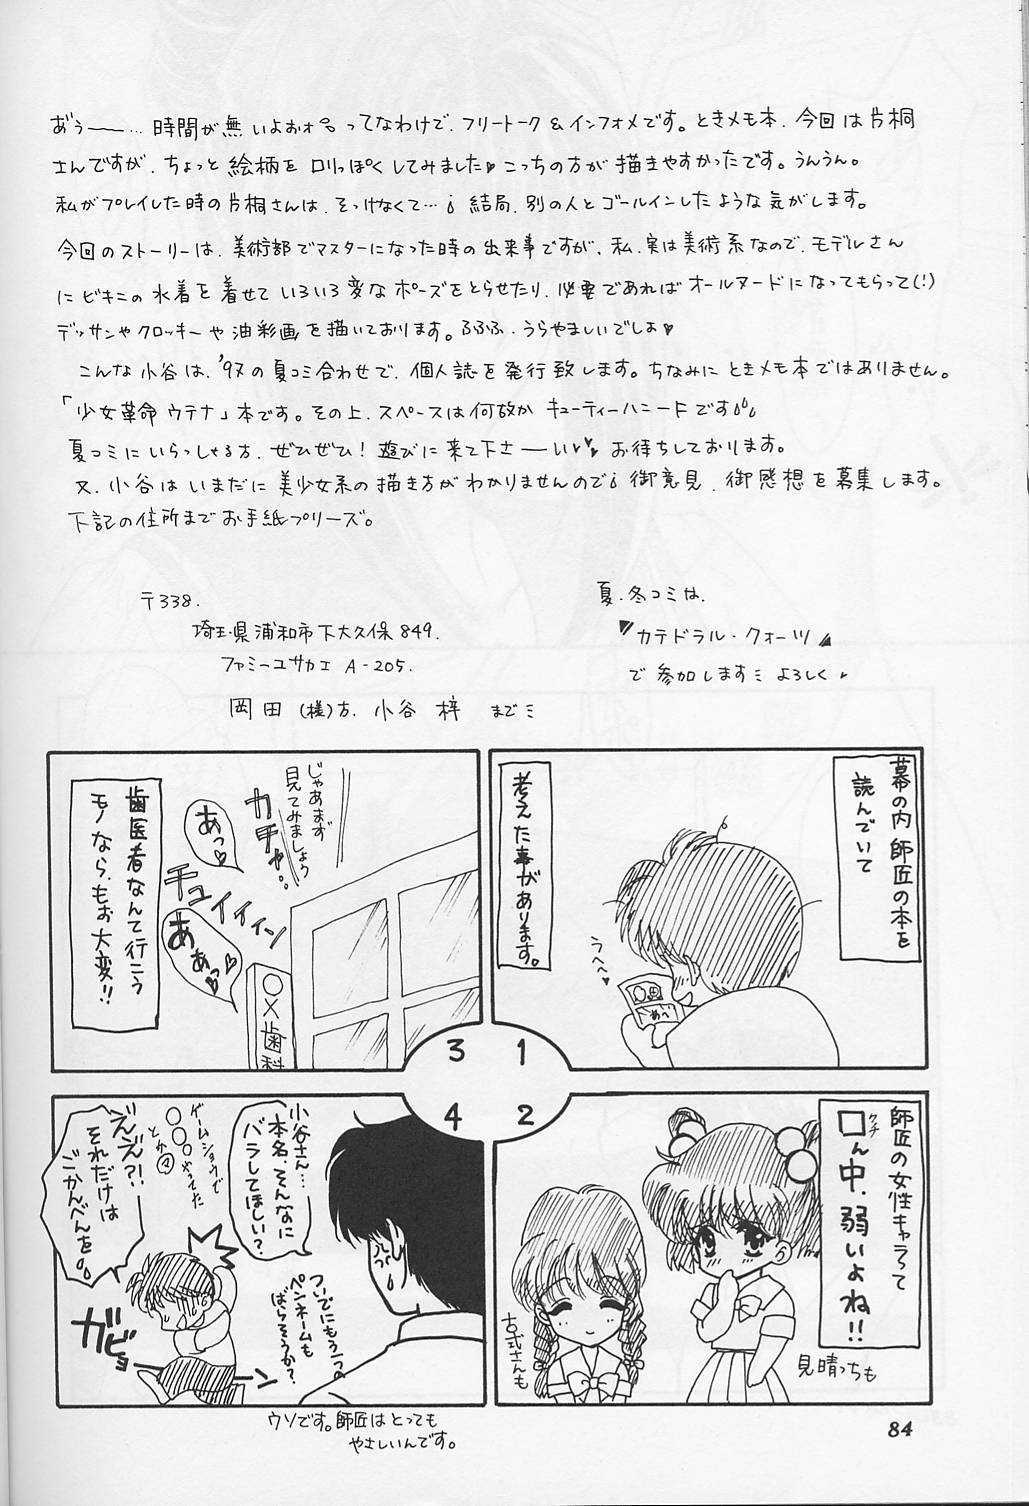 あ゛ぅ――… 時間が無いよおォ。ってなわけで、フリートーク&インフォメです。ときメモ本、今回は片桐
さんですが、ちょっと絵柄をロリっぽくしてみました♥こっちの方が描きやすかったです。うんうん。
私がプレイした時の片桐さんは、そっけなくて…。結局、別の人とゴールインしたような気がします。
今回のストーリーは、美術部でマスターになった時の出来事ですが、私、実は美術系なので、モデルさん
にビキニの水着を着せていろいろ変なポーズをとらせたり、必要であればオールヌードになってもらって(!)
デッサンやクロッキーや油彩画を描いております。るふふ、うらやましいでしょ♥
こんな小谷は、'97の夏コミ合わせで、個人誌を発行致します。ちなみにときメモ本ではありません。
「少女革命ウテナ」本です。その上、スペースは何故かキューティーハニードです
夏コミにいらっしゃる方、ぜひぜひ!遊びに来て下さ――い♥♥お待ちしております。
又、小谷はいまだに美少女系の描き方がわかりませんので。御意見、御感想を募集します。
下記の住所までお手紙プリーズ。
〒338.
埼玉県浦和市下大久保849.
ファミーユサカエ A-205.
岡田(様)方、小谷 梓 まで
夏、冬コミは、
"カテドラル・クォーツ"
で参加します よろしく♥
幕の内師匠の本を
読んでいて
考えた事があります。
うへへ♥
1
師匠の女性キャラって
口ん中、弱いよね!!
クチ
見晴っちも
古式さんも
2
じゃあまず
見てみましょう
カチャ…
あっ♥
チュイイィン
あぁっ♥♥
○×歯科
歯医者なんて行こう
モノなら、もお大変!!
3
小谷さん…
本名、そんなに
バラしてほしい?
ゲームショウで
○○○やってた
とか㋮
ええ?!
それだけは
ごかんべんを。
ついでにもう一つの
ペンネームも
ばらそうか?
ガビョーン
4
ウソです。師匠はとっても
やさしいんです。
84